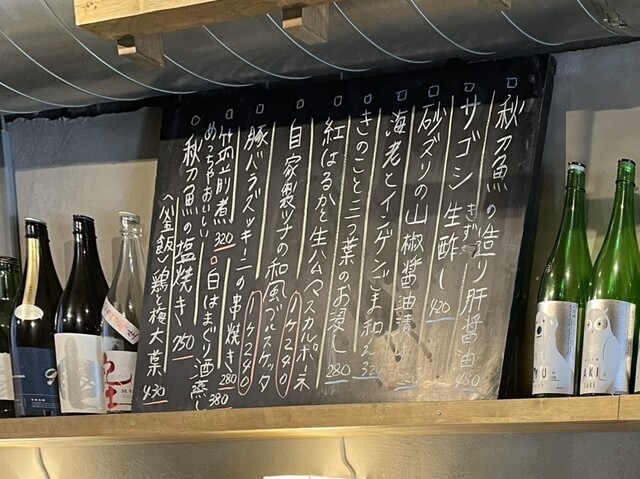 秋刀魚の造り 肝醤油 480
サゴシ 生酢〆 420
きずし
砂ズリの山椒醤油漬け
海老とインゲンごま和え 320
きのこと三つ葉のお浸し 280
紅はるかと生ハムマスカルポーネ 1ヶ240
自家製ツナの和風ブルスケッタ 1ヶ240
豚バラズッキーニの串焼き 280
竹の子土佐煮 320
白はまぐり酒蒸し 380
めっちゃおいしい
秋刀魚の塩焼き 750
〈釜飯〉鶏と梅大葉 430